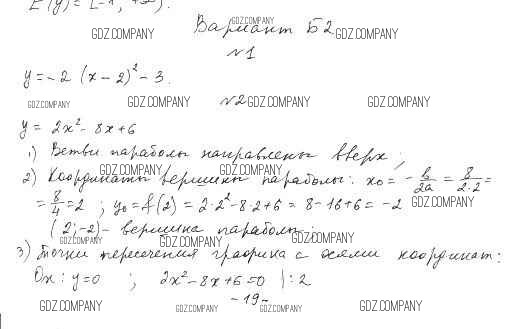 E(y) = [-1; +∞).
Вариант Б2
GDZ.COMPANY GDZ.COMPANY GDZ.COMPANY
№1
y = -2 (x-2)² - 3.
GDZ.COMPANY GDZ.COMPANY №2 GDZ.COMPANY GDZ.COMPANY
y = 2x² - 8x + 6
1) Ветви параболы направлены вверх;
GDZ.COMPANY GDZ.COMPANY
2) Координаты вершины параболы: x₀ = -b/2a = 8/2·2 =
= 8/4 = 2 ; y₀ = f(2) = 2·2² - 8·2 + 6 = 8 - 16 + 6 = -2 GDZ.COMPANY
(2; -2) - вершина параболы.
GDZ.COMPANY GDZ.COMPANY GDZ.COMPANY
3) Точки пересечения графика с осями координат:
Ox: y = 0 ; 2x² - 8x + 6 = 0 |: 2
-19-
GDZ.COMPANY GDZ.COMPANY GDZ.COMPANY GDZ.COMPANY